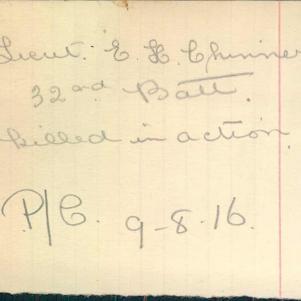 Lieut. E. H. Chinner
32nd Batt.
killed in action
P/C. 9-8-16.